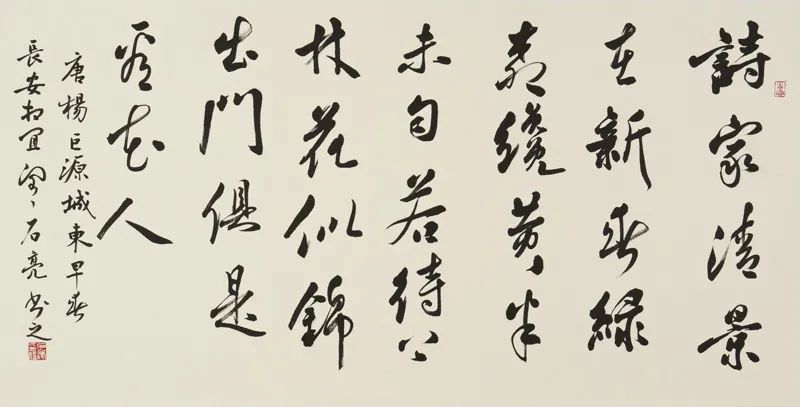 詩家清景
在新春綠
柳纔黃半
未勻若待上
林花似錦
出門俱是
看花人
唐楊巨源城東早春
長安宜石亮書之